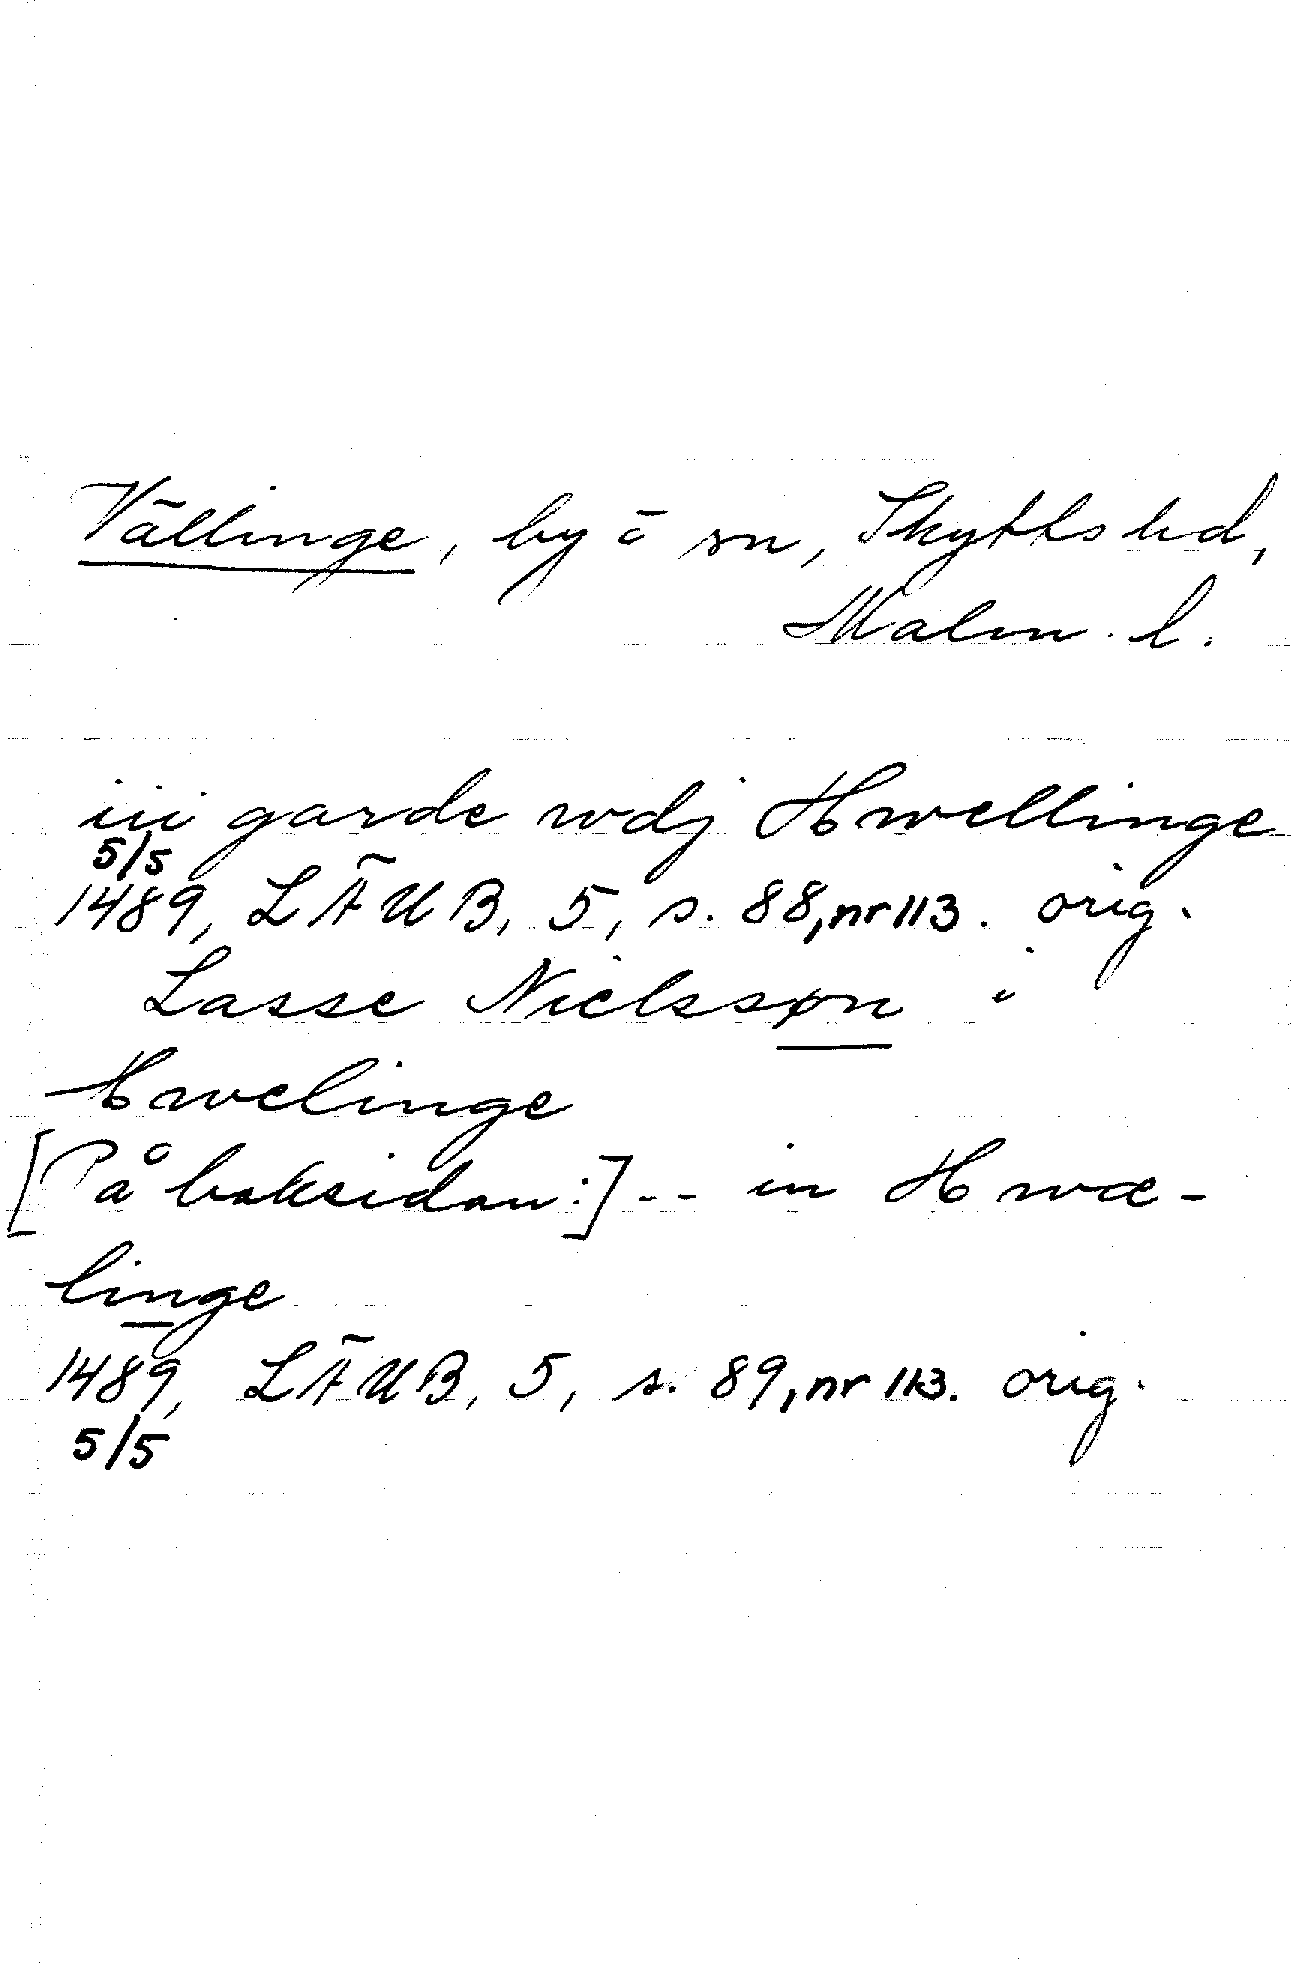 Vällinge, by ö sn, Skytts hd,
Malm. l.
iii garde wdj Hwellinge
5/5
1489, LÄUB, 5, s. 88, nr 113. orig.
Lasse Nielssøn i
Hwelinge
[På baksidan:] -- in Hwæ-
linge
1489, LÄUB, 5, s. 89, nr 113. orig.
5/5